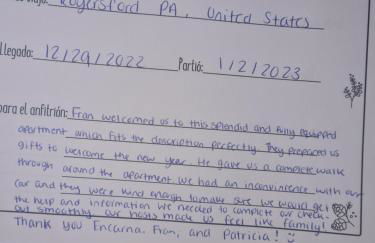 Royersford PA, United States
llegada: 12/29/2022 Partió: 1/2/2023
para el anfitrión: Fran welcomed us to this splendid and fully equipped
apartment which fits the description perfectly. They prepared us
gifts to welcome the new year. He gave us a complete walk
through around the apartment. We had an inconvinience with our
car and they were kind enough to make sure we would get
the help and information we needed to complete our check-
out smoothly. Our hosts made us feel like family!
Thank you Encarna, Fran, and Patricia!